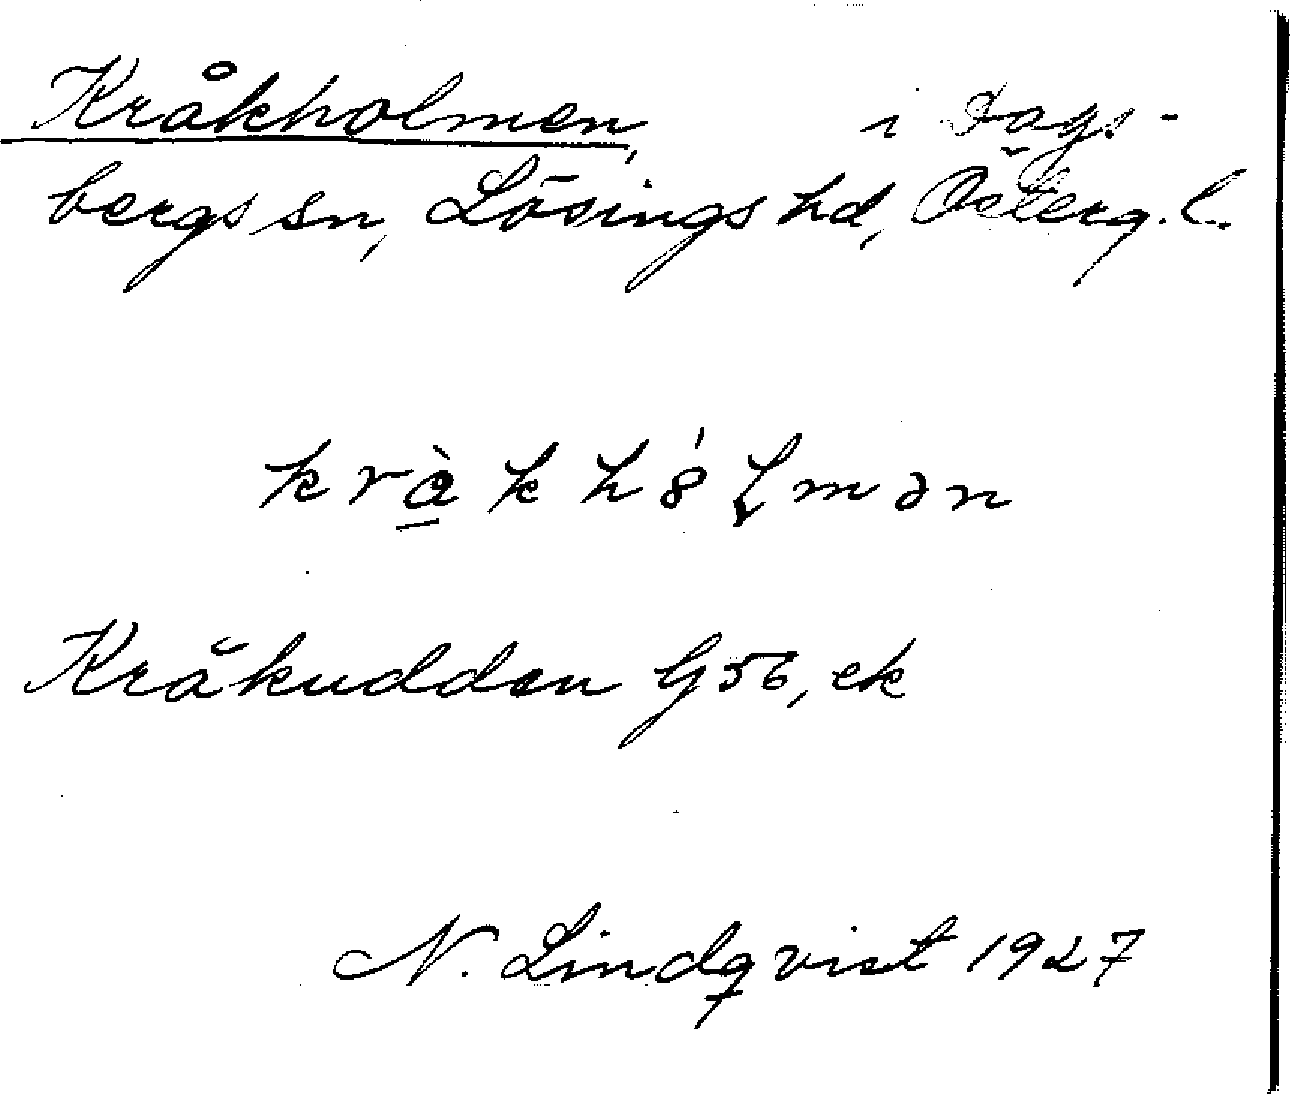 Kråkholmen, i Dags-
bergs sn, Lösings hd, Österg. l.
kràkhólmən
Kråkudden G 56, ek
N. Lindqvist 1927